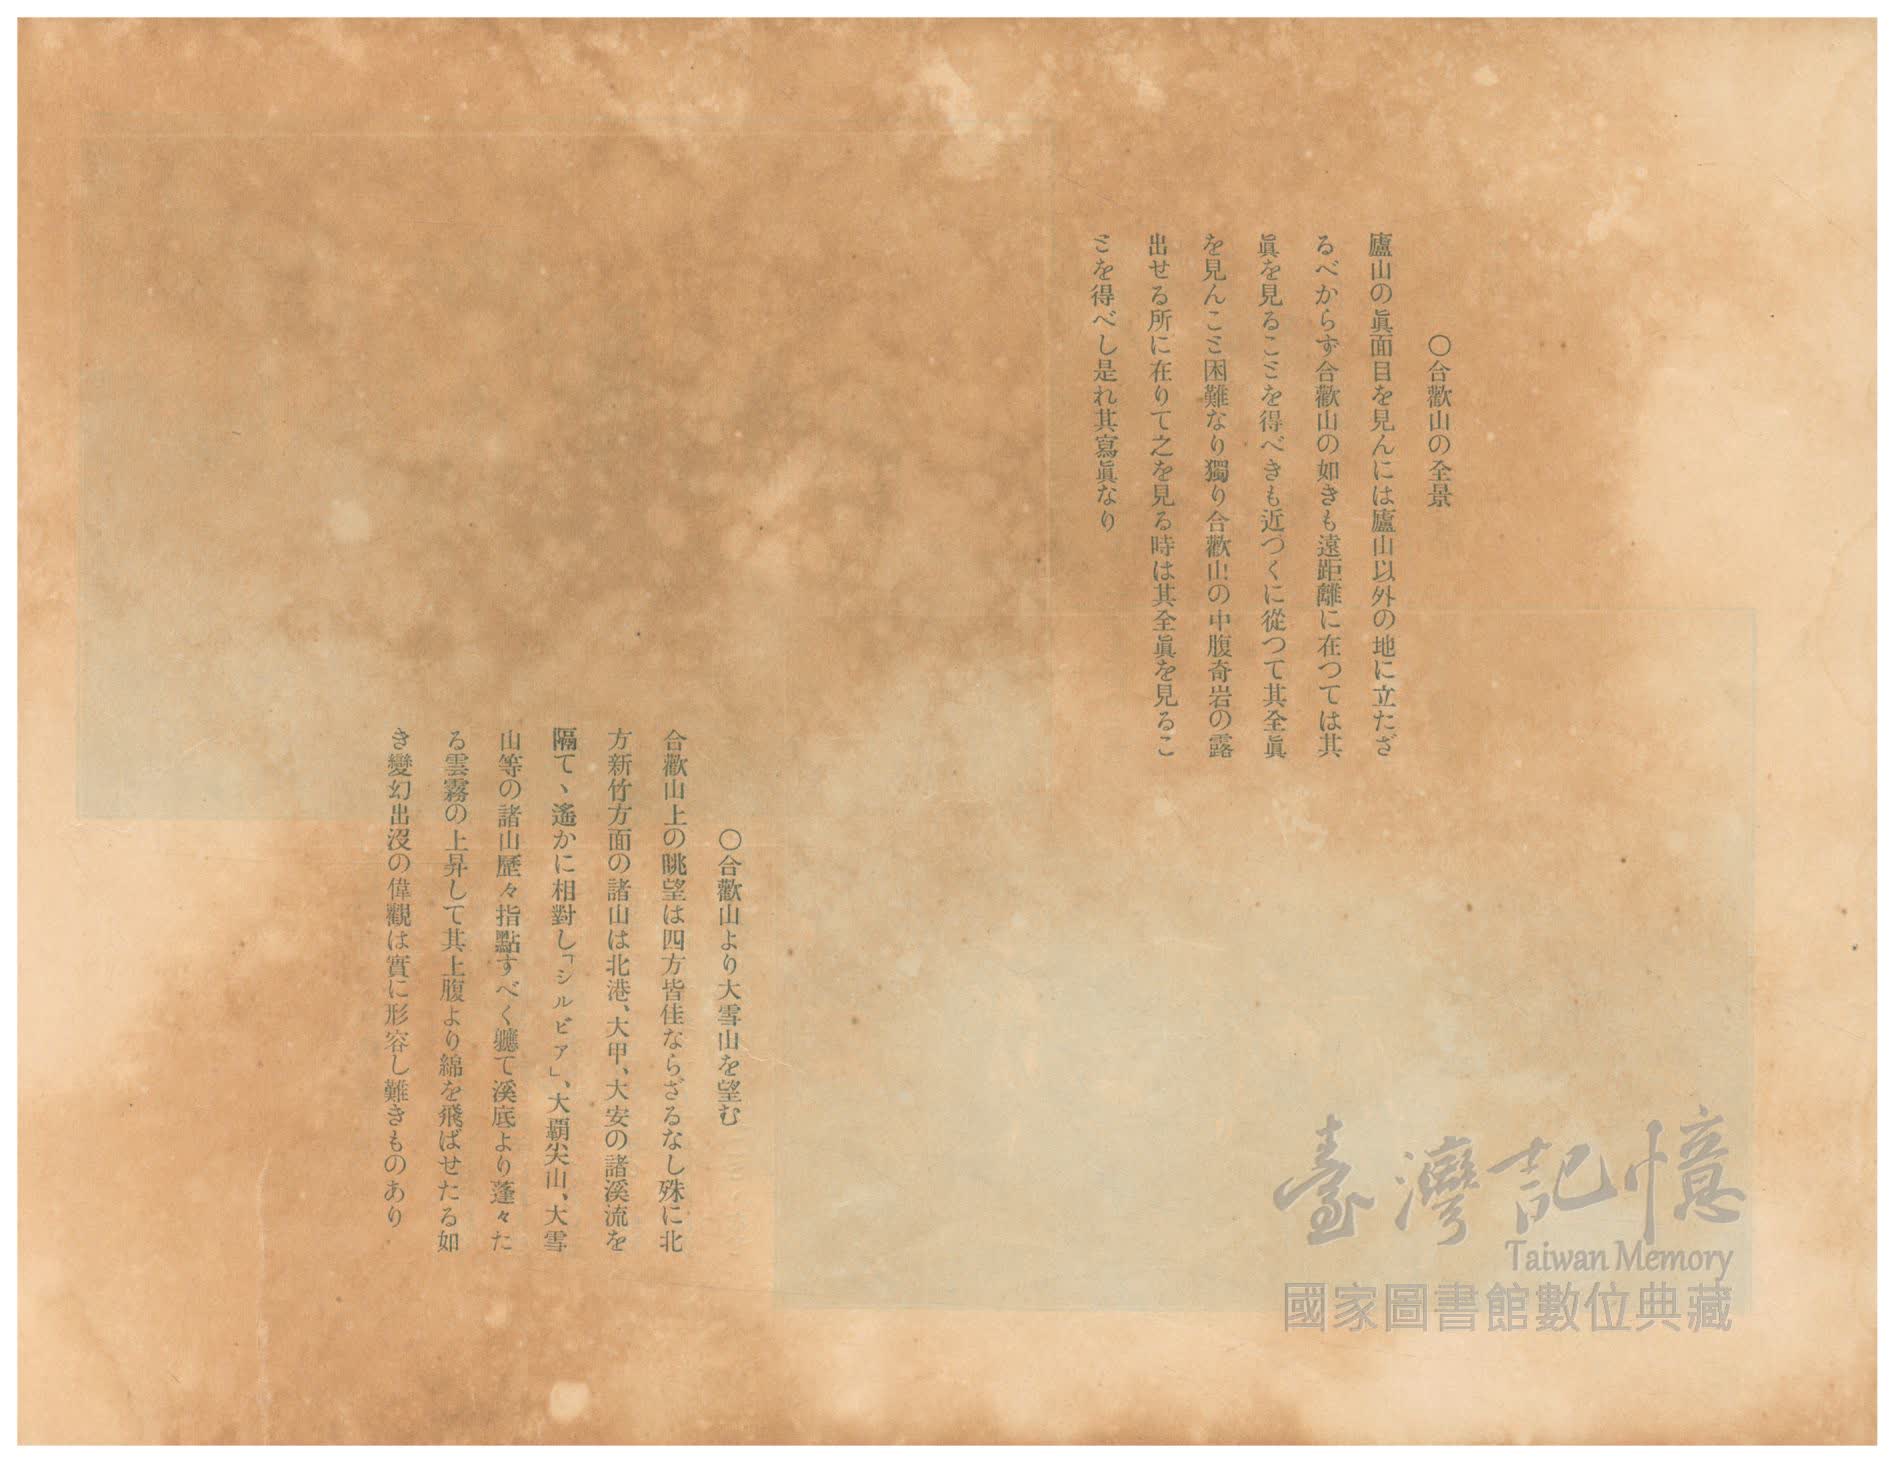 ○合歡山の全景
廬山の眞面目を見んには廬山以外の地に立たざ
るべからず合歡山の如きも遠距離に在つては其
眞を見るこミを得べきも近づくに從つて其全眞
を見んこミ困難なり獨り合歡山の中腹奇岩の露
出せる所に在りて之を見る時は其全眞を見るこ
ミを得べし是れ其寫眞なり
○合歡山より大雪山を望む
合歡山上の眺望は四方皆佳ならざるなし殊に北
方新竹方面の諸山は北港、大甲、大安の諸溪流を
隔てヽ遙かに相對し「シルビア」、大覇尖山、大雪
山等の諸山歷々指點すべく軈て溪底より蓬々た
る雲霧の上昇して其上腹より綿を飛ばせたる如
き變幻出沒の偉觀は實に形容し難きものあり
臺灣記憶
Taiwan Memory
國家圖書館數位典藏